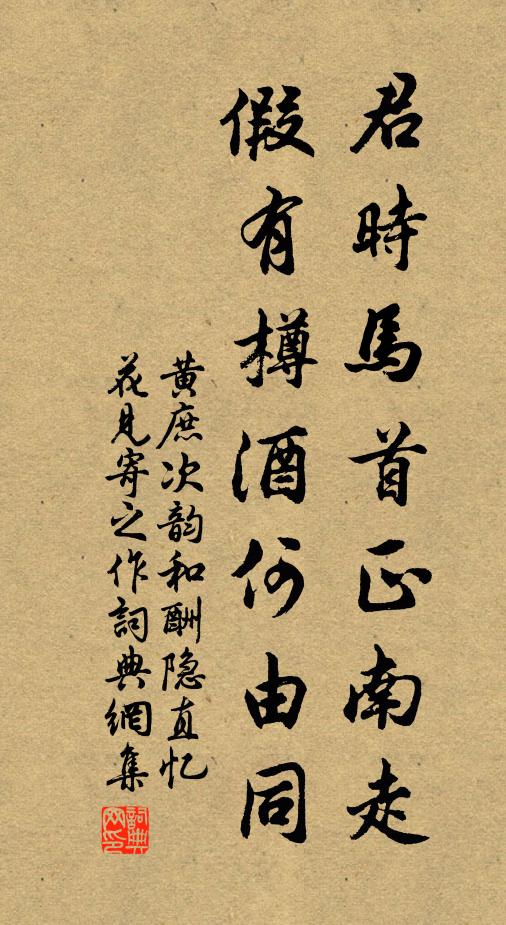 君時馬首正南走
假有樽酒何由同
黄庶次韵和酬隐直忆
花見寄之作詞典網集
詞典网印